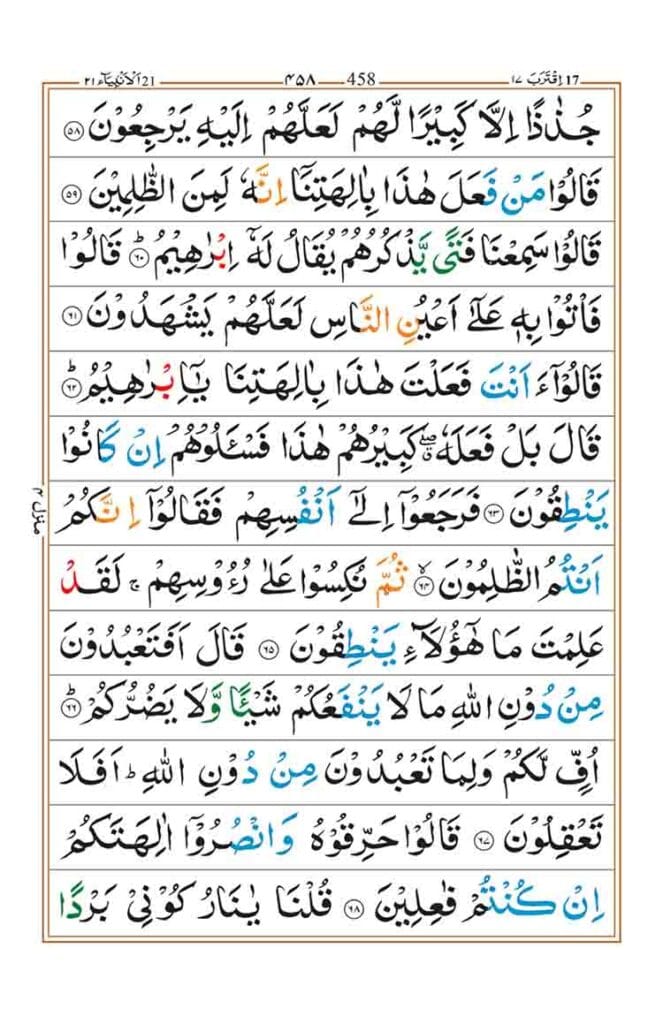 الۡاَنۡۢبِيَآء ٢١ 21 ٤٥٨ 458 17 اِقۡتَرَبَ ١٧
جُذٰذًا اِلَّا كَبِيۡرًا لَّهُمۡ لَعَلَّهُمۡ اِلَيۡهِ يَرۡجِعُوۡنَ ﴿٥٨﴾
قَالُوۡا مَنۡ فَعَلَ هٰذَا بِاٰلِهَتِنَاۤ اِنَّهٗ لَمِنَ الظّٰلِمِيۡنَ ﴿٥٩﴾
قَالُوۡا سَمِعۡنَا فَتًى يَّذۡكُرُهُمۡ يُقَالُ لَهٗۤ اِبۡرٰهِيۡمُ ؕ﴿٦٠﴾ قَالُوۡا
فَاۡتُوۡا بِهٖ عَلٰٓى اَعۡيُنِ النَّاسِ لَعَلَّهُمۡ يَشۡهَدُوۡنَ ﴿٦١﴾
قَالُوۡٓا ءَاَنۡتَ فَعَلۡتَ هٰذَا بِاٰلِهَتِنَا يٰۤاِبۡرٰهِيۡمُ ؕ﴿٦٢﴾
قَالَ بَلۡ فَعَلَهٗ ۖ كَبِيۡرُهُمۡ هٰذَا فَسۡـَٔلُوۡهُمۡ اِنۡ كَانُوۡا
يَنۡطِقُوۡنَ ﴿٦٣﴾ فَرَجَعُوۡۤا اِلٰٓى اَنۡفُسِهِمۡ فَقَالُوۡۤا اِنَّكُمۡ
اَنۡتُمُ الظّٰلِمُوۡنَ ۙ﴿٦٤﴾ ثُمَّ نُكِسُوۡا عَلٰى رُءُوۡسِهِمۡ ۚ لَقَدۡ
عَلِمۡتَ مَا هٰٓؤُلَآءِ يَنۡطِقُوۡنَ ﴿٦٥﴾ قَالَ اَفَتَعۡبُدُوۡنَ
مِنۡ دُوۡنِ اللّٰهِ مَا لَا يَنۡفَعُكُمۡ شَيۡـًٔا وَّلَا يَضُرُّكُمۡ ؕ﴿٦٦﴾
اُفٍّ لَّكُمۡ وَلِمَا تَعۡبُدُوۡنَ مِنۡ دُوۡنِ اللّٰهِ ؕ اَفَلَا
تَعۡقِلُوۡنَ ﴿٦٧﴾ قَالُوۡا حَرِّقُوۡهُ وَانۡصُرُوۡۤا اٰلِهَتَكُمۡ
اِنۡ كُنۡتُمۡ فٰعِلِيۡنَ ﴿٦٨﴾ قُلۡنَا يٰنَارُ كُوۡنِىۡ بَرۡدًا
منزل ٤